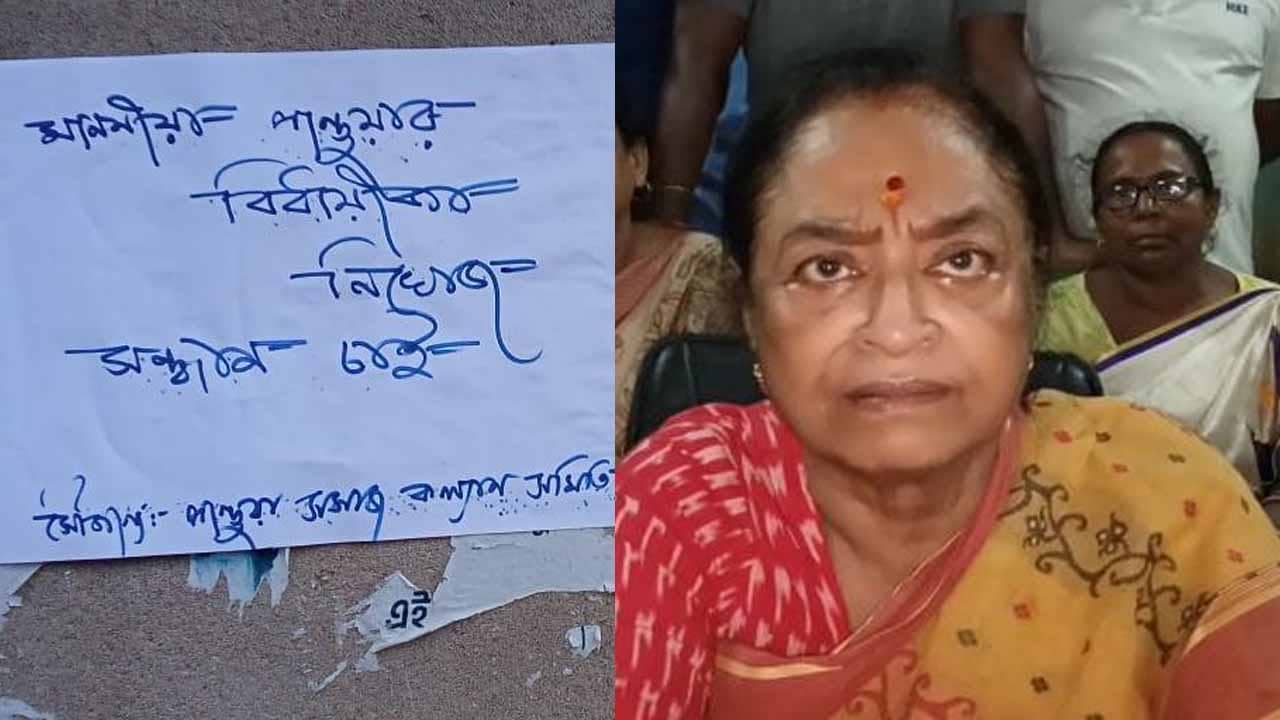 মাননীয়া পান্ডুয়ার
বিধায়ীকার
নিখোঁজ
সন্ধান চাই
সৌজন্যে:- পান্ডুয়া সমাজ কল্যান সমিতি
এই